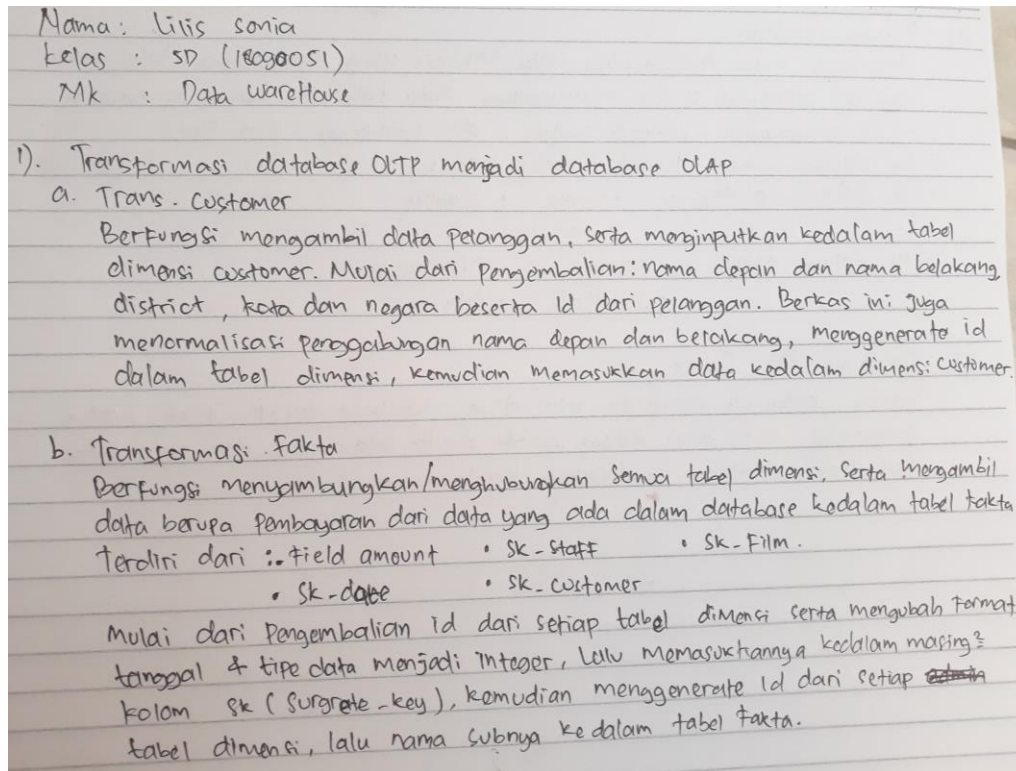 Nama : Lilis sonia
kelas : 5D (18090051)
Mk : Data wareHouse
1). Transformasi database OLTP menjadi database OLAP
a. Trans. Customer
Berfungsi mengambil data pelanggan, serta menginputkan kedalam tabel
dimensi customer. Mulai dari pengembalian: nama depan dan nama belakang
district, kota dan negara beserta Id dari pelanggan. Berkas ini juga
menormalisasi penggabungan nama depan dan belakang, menggenerate id
dalam tabel dimensi, kemudian memasukkan data kedalam dimensi customer.
b. Transformasi fakta
Berfungsi menyambungkan/menghubungkan semua tabel dimensi, serta mengambil
data berupa pembayaran dari data yang ada dalam database kedalam tabel fakta
Terdiri dari :• field amount • Sk-Staff • Sk-Film.
• Sk-date • Sk-customer
Mulai dari Pengembalian id dari setiap tabel dimensi serta mengubah format
tanggal & tipe data menjadi integer, Lalu memasukkannya kedalam masing²
kolom sk (Surgrete-key), kemudian menggenerate id dari setiap
tabel dimensi, lalu nama subnya ke dalam tabel fakta.